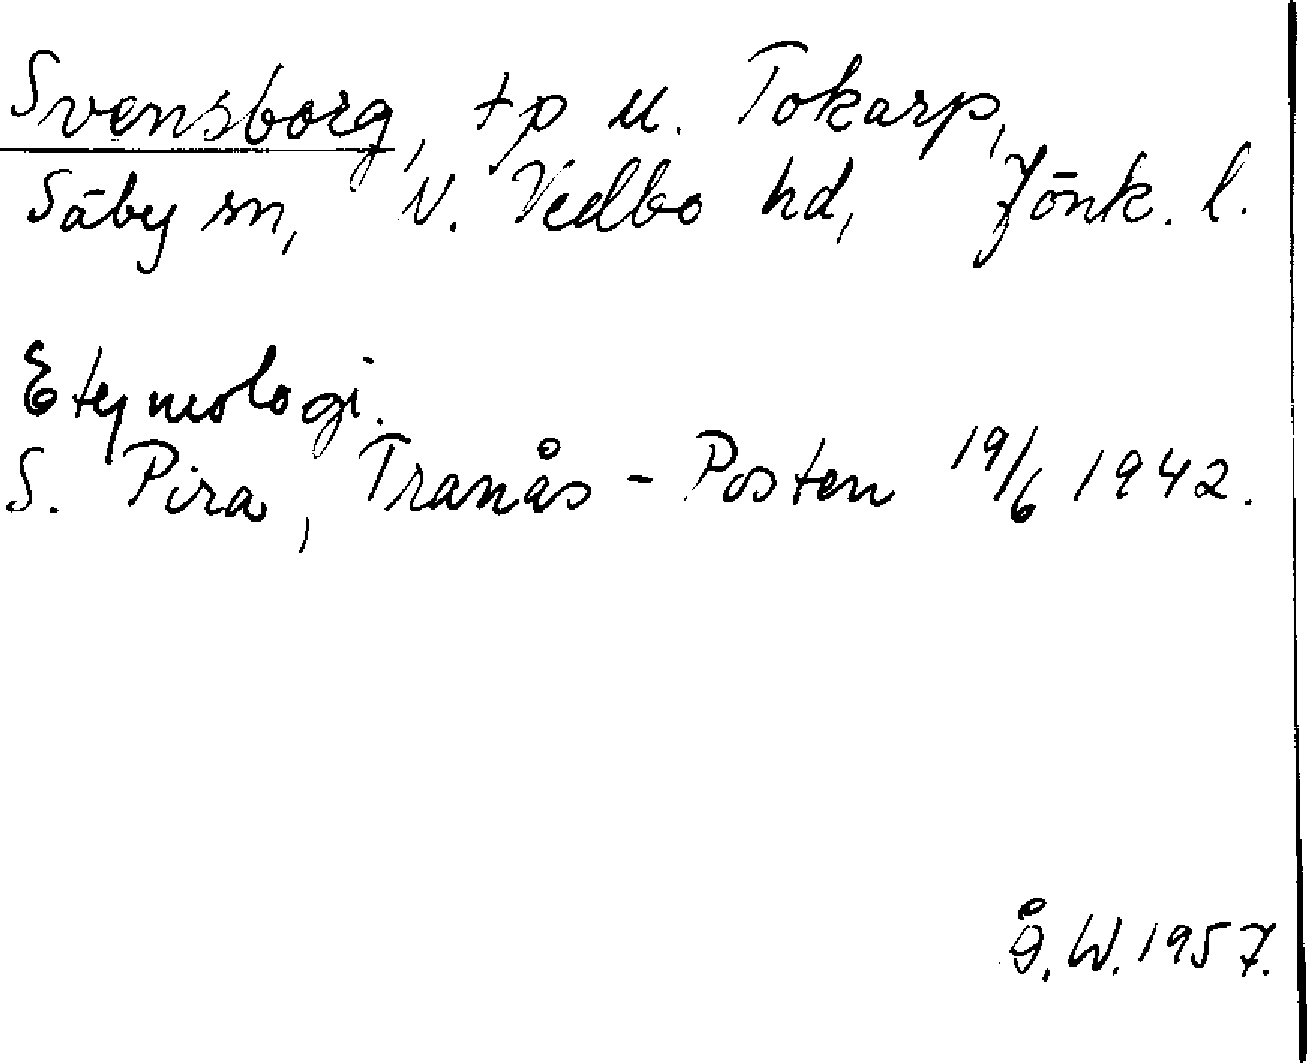 Svensborg, tp u. Tokarp,
Säby sn, N. Vedbo hd, Jönk. l.
Etymologi.
S. Pira, Tranås-Posten 19/6 1942.
Å. W. 1957.